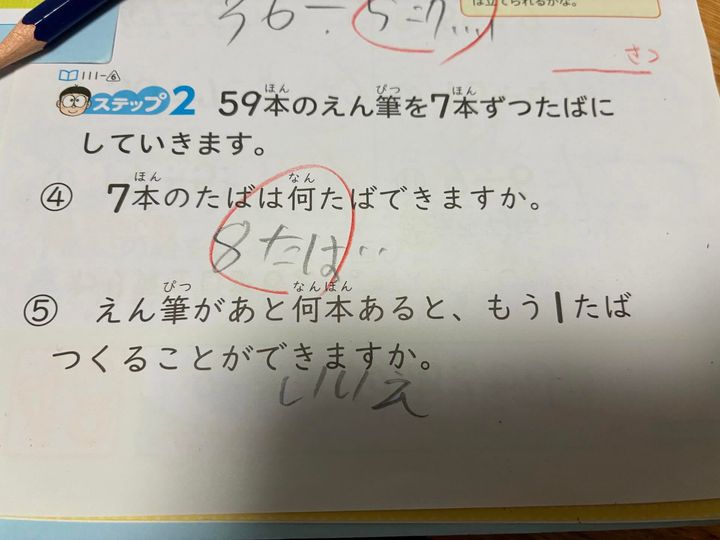 は立てられるかな。
さつ
111-6
ステップ2 59本のえん筆を7本ずつたばに
していきます。
④ 7本のたばは何たばできますか。
8たば
⑤ えん筆があと何本あると、もう1たば
つくることができますか。
いいえ